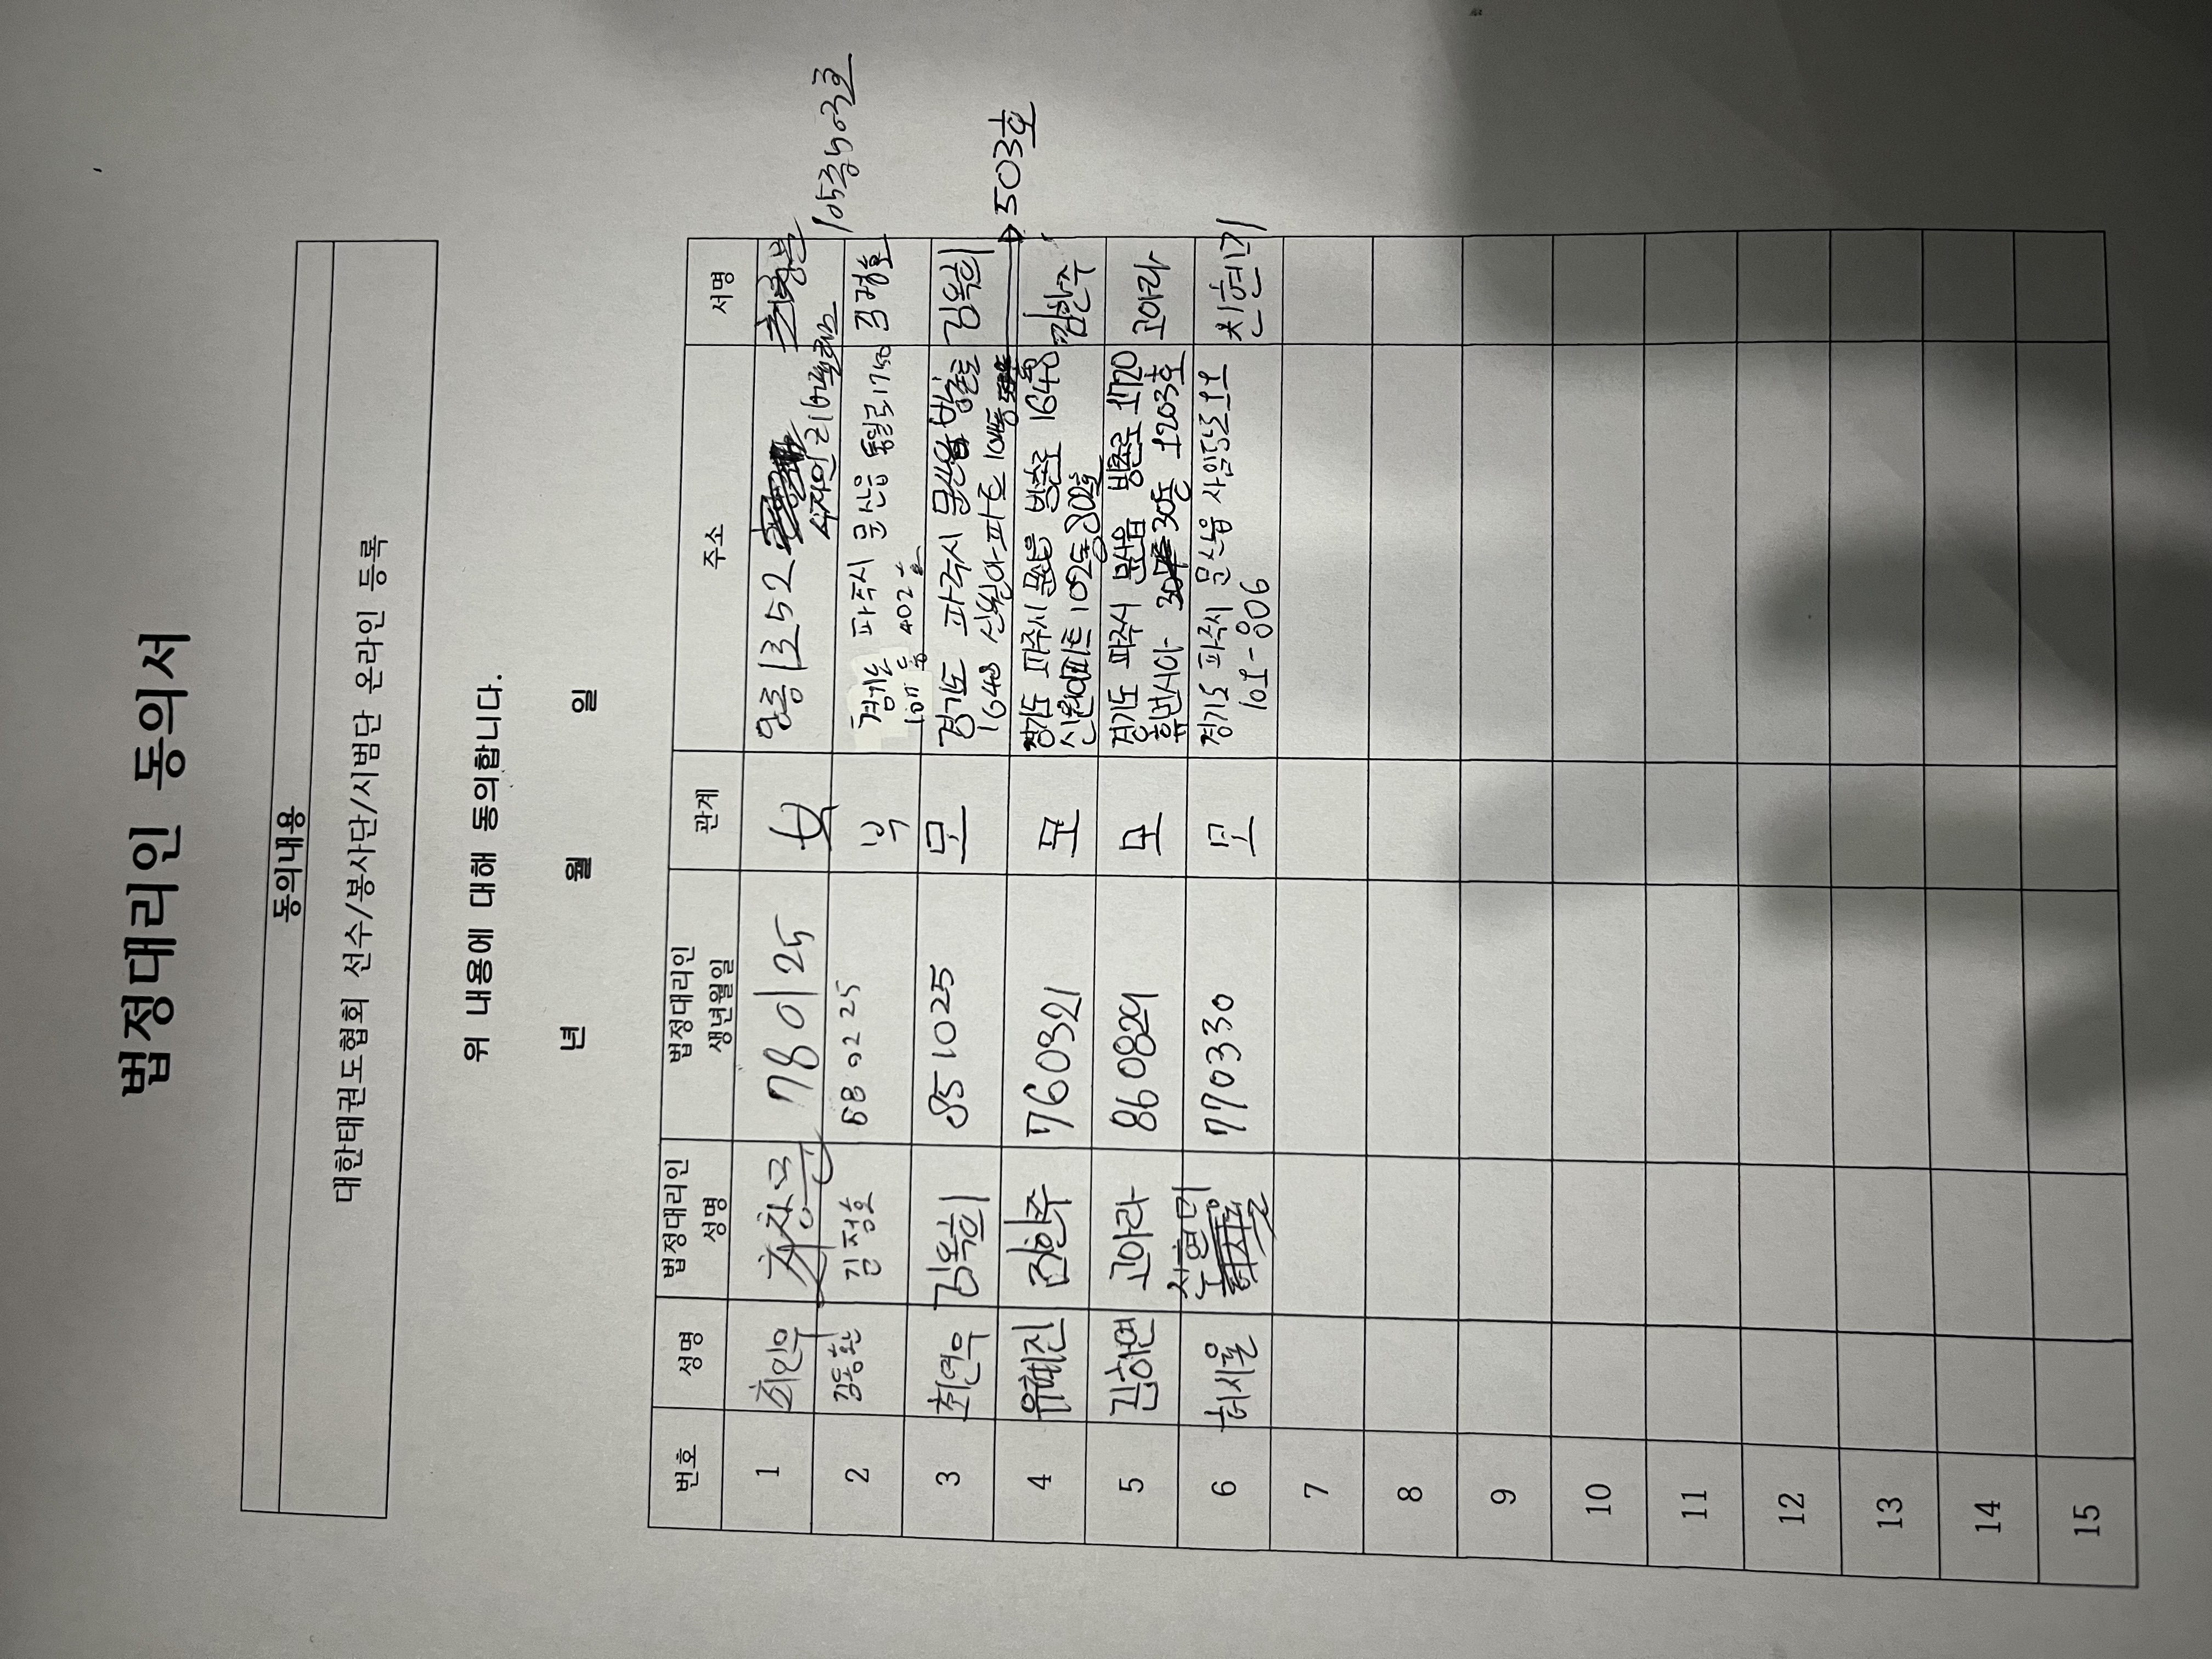 법정대리인 동의서
동의내용
대한태권도협회 선수/봉사단/시범단 온라인 등록
위 내용에 대해 동의합니다.
년 월 일
번호 성명 법정대리인 성명 법정대리인 생년월일 관계 주소 서명
1 최인우 최창문 780125 父 1352 시자인 최창문
105동 503호
2 김동환 김정호 680225 부 경기도 파주시 문산읍 통일로 1750 김정호
402호
3 최연우 김옥희 851025 모 경기도 파주시 문산읍 방촌로 김옥희
1648 신원아파트 104동 → 503호
4 유혜진 김한주 760321 모 경기도 파주시 문산읍 방촌로 1648 김한주
신원아파트 102동 802호
5 김하연 고아라 860829 모 경기도 파주시 문산읍 방촌로 1720 고아라
휴먼시아 305동 1203호
6 허시율 진현미 770330 모 경기도 파주시 문산읍 사임당로 11 진현미
101-806
7
8
9
10
11
12
13
14
15